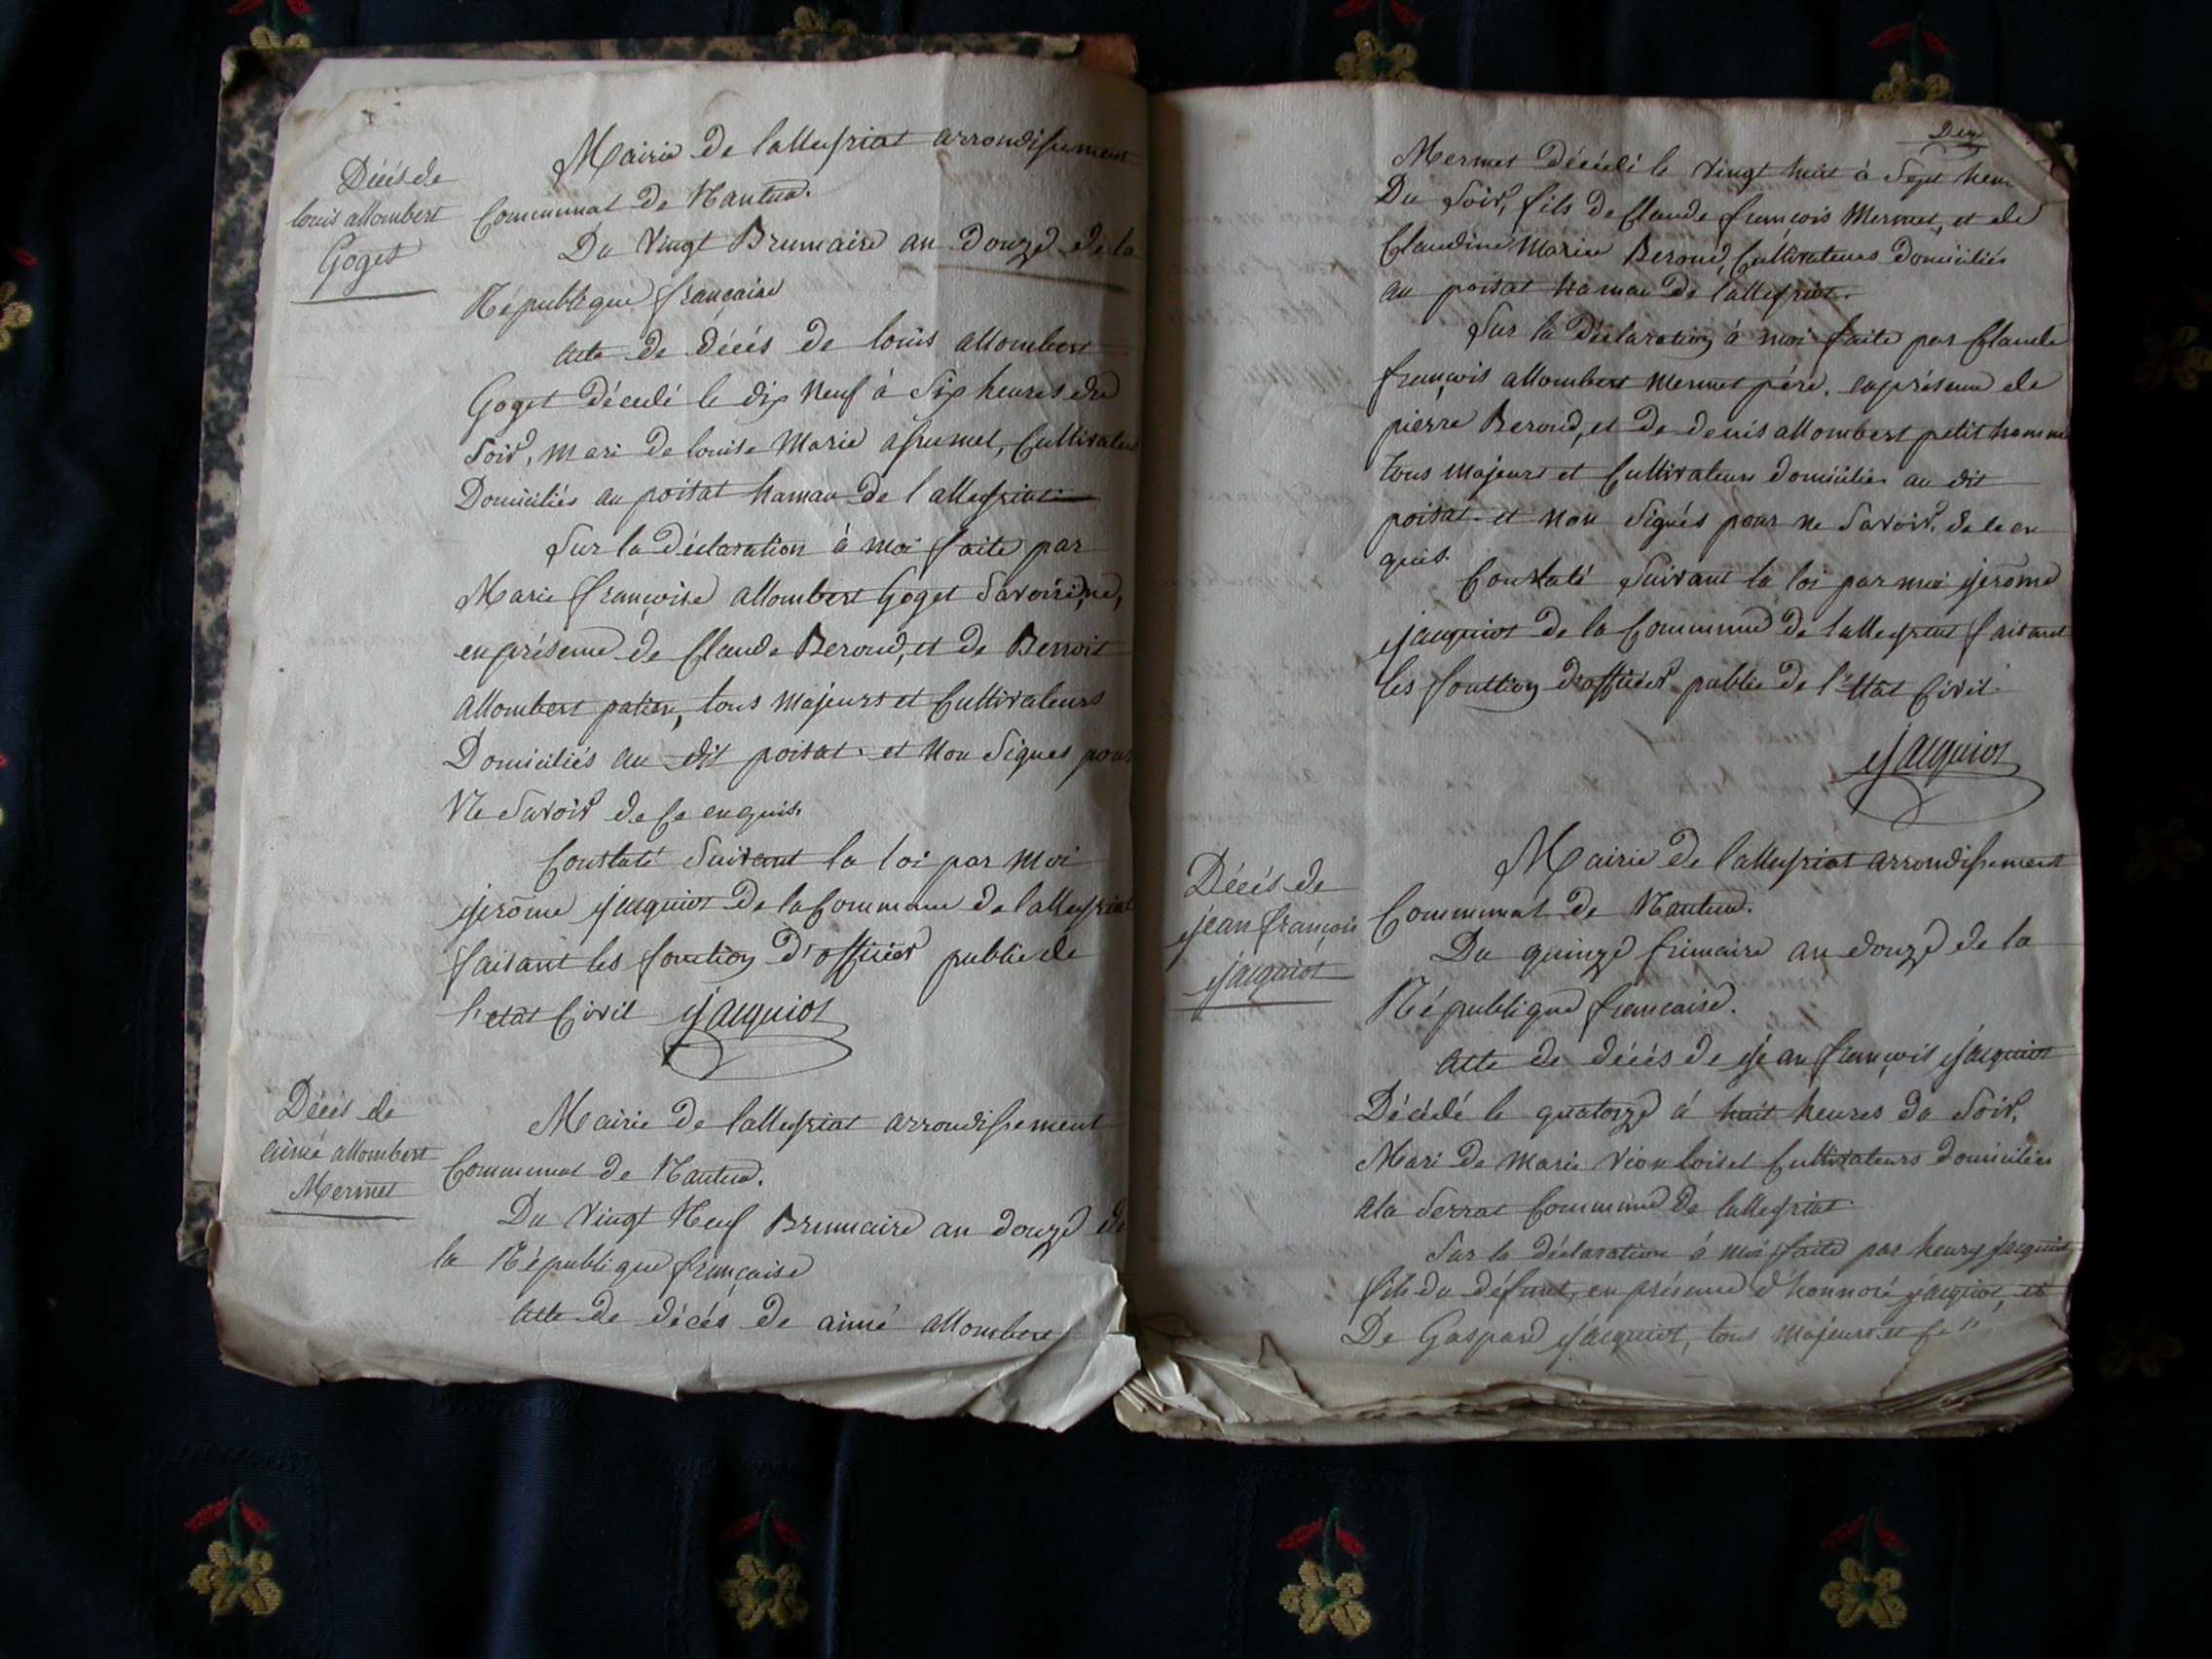 Décès de
louis allombert
Goget
Mairie de lalleyriat arrondissement
Communal de Nantua.
Du Vingt Brumaire an douze de la
République française
Acte de décès de louis allombert
Goget décédé le dix neuf à Six heures du
Soir, mari de louise Marie assumel, Cultivateurs
Domiciliés au poisat hamau de lalleyriat
Sur la déclaration à moi faite par
Marie françoise allombert Goget
en présence de Claude Beroud, et de Benoit
allombert patien, tous majeurs et Cultivateurs
Domiciliés au dit poisat. et non Signés pour
Ne Savoir de Ce enquis.
Constaté Suivant la loi par moi
jerôme jacquiot de la Commune de lalleyriat
faisant les fonction d'officier public de
l'etat Civil jacquiot
Décès de
aimé allombert
Mermet
Mairie de lalleyriat arrondissement
Communal de Nantua.
Du Vingt Neuf Brumaire an douze de
la République française
Acte de décès de aimé allombert
Mermet décédé le vingt huit à Sept heur
Du Soir, fils de Claude françois Mermet, et de
Claudine Marie Beroud, Cultivateurs domiciliés
au poisat hamau de lalleyriat.
Sur la déclaration à moi faite par Claude
françois allombert Mermet père. en présence de
pierre Beroud, et de denis allombert petit homme
tous majeurs et Cultivateurs domiciliés au dit
poisat. et non Signés pour ne Savoir. de ce en
quis.
Constaté Suivant la loi par moi jerôme
jacquiot de la Commune de lalleyriat faisant
les fonction d'officier public de l'etat Civil.
jacquiot
Décès de
jean françois
jacquiot
Mairie de lalleyriat arrondissement
Communal de Nantua.
Du quinze frimaire an douze de la
République française.
Acte de décès de jean françois jacquiot
Décédé le quatorze à huit heures du Soir,
Mari de Marie Vion loisel Cultivateurs domiciliés
a la Serrat Commune de lalleyriat
Sur la déclaration à moi faite par henry jacquiot
fils du défunt, en présence d'honnoré jacquiot, et
De Gaspard jacquiot, tous majeurs et